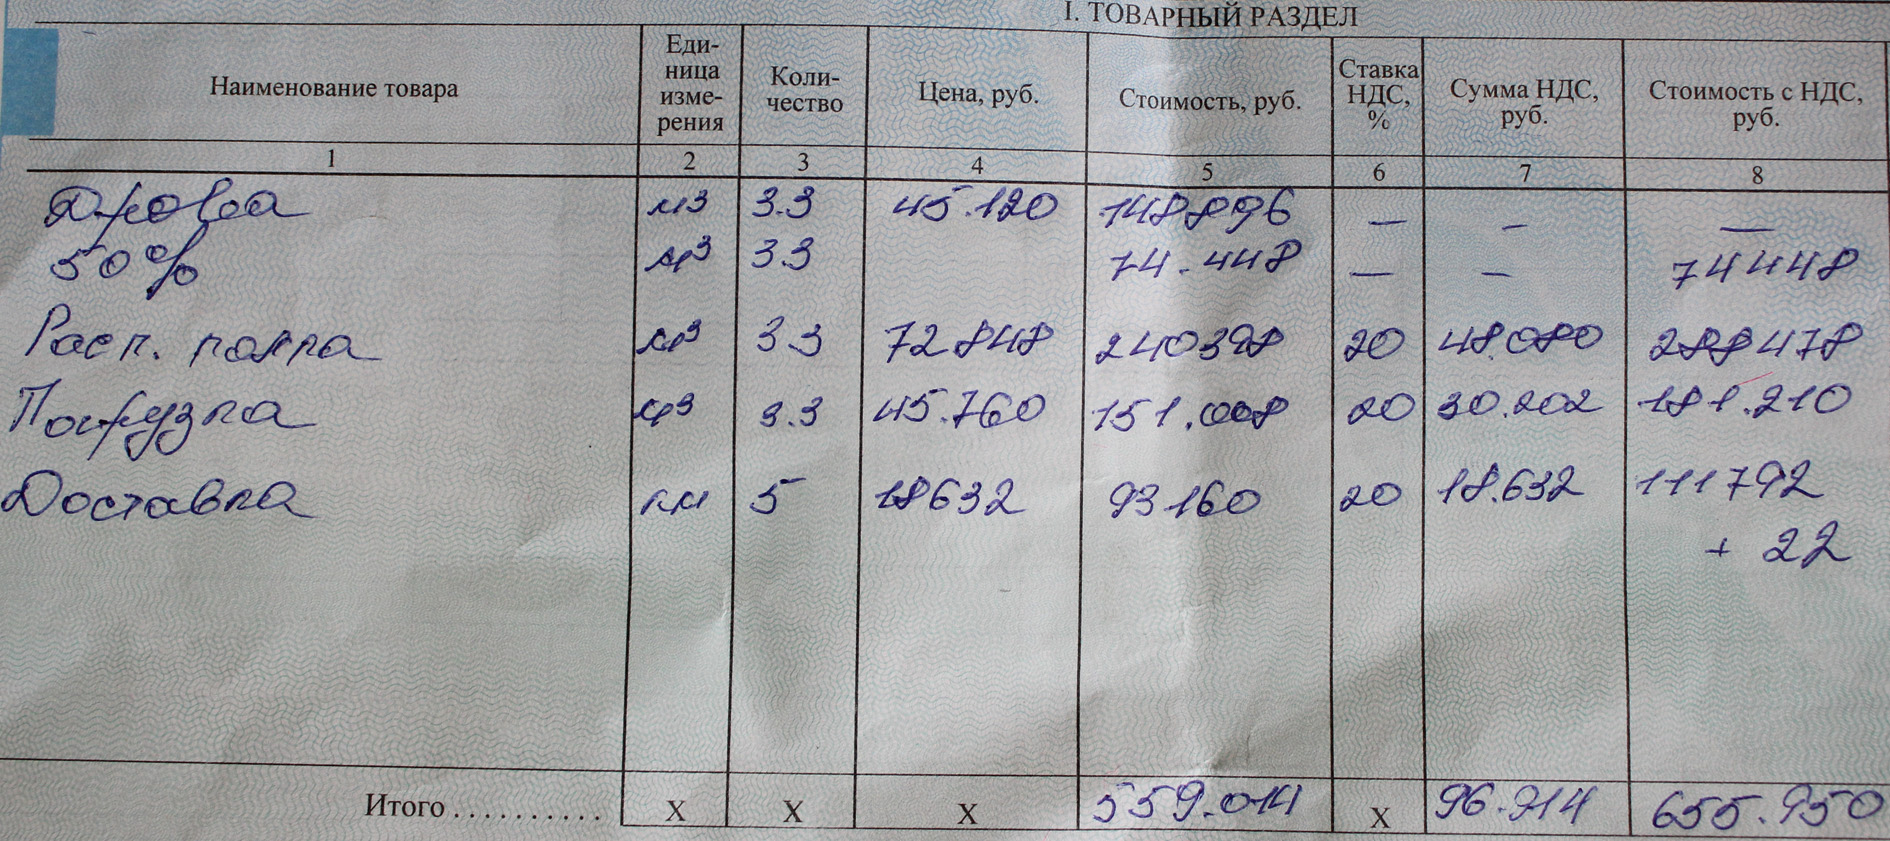 I. ТОВАРНЫЙ РАЗДЕЛ
Наименование товара Еди-ница изме-рения Коли-чество Цена, руб. Стоимость, руб. Ставка НДС, % Сумма НДС, руб. Стоимость с НДС, руб.
1 2 3 4 5 6 7 8
Дрова м3 3.3 45.120 148896 — — —
50% м3 3.3 74.448 — — 74448
Расп. колка м3 3.3 72848 240398 20 48.080 288478
Погрузка м3 3.3 45.760 151.008 20 30.202 181.210
Доставка км 5 18632 93160 20 18.632 111792
+ 22
Итого . . . . . . . . . . X X X 559.014 X 96.914 655.950